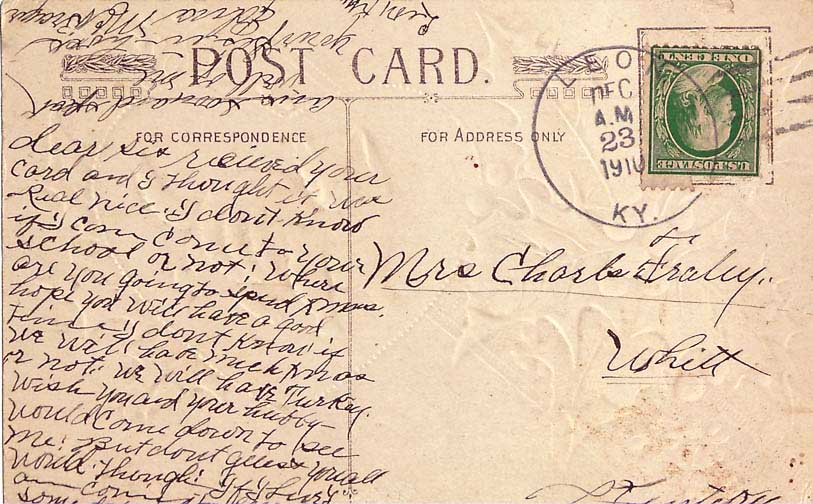 POST CARD.
FOR CORRESPONDENCE
FOR ADDRESS ONLY
YEO
DEC
A.M
23
1910
KY.
ONE CENT
U.S. POSTAGE
dear sis recieved your
card and I thought it was
Real nice. I dont Know
if I can come to your
school or not. Where
are you going to spend Xmas.
hope you will have a good
time I dont Know if
we will have much Xmas
or not. we will have Turkey.
wish you and your hubby
would come down to see
me. but dont guess you all
would though. If I live
am coming
some
Mrs Charles Fraley.
Whitt